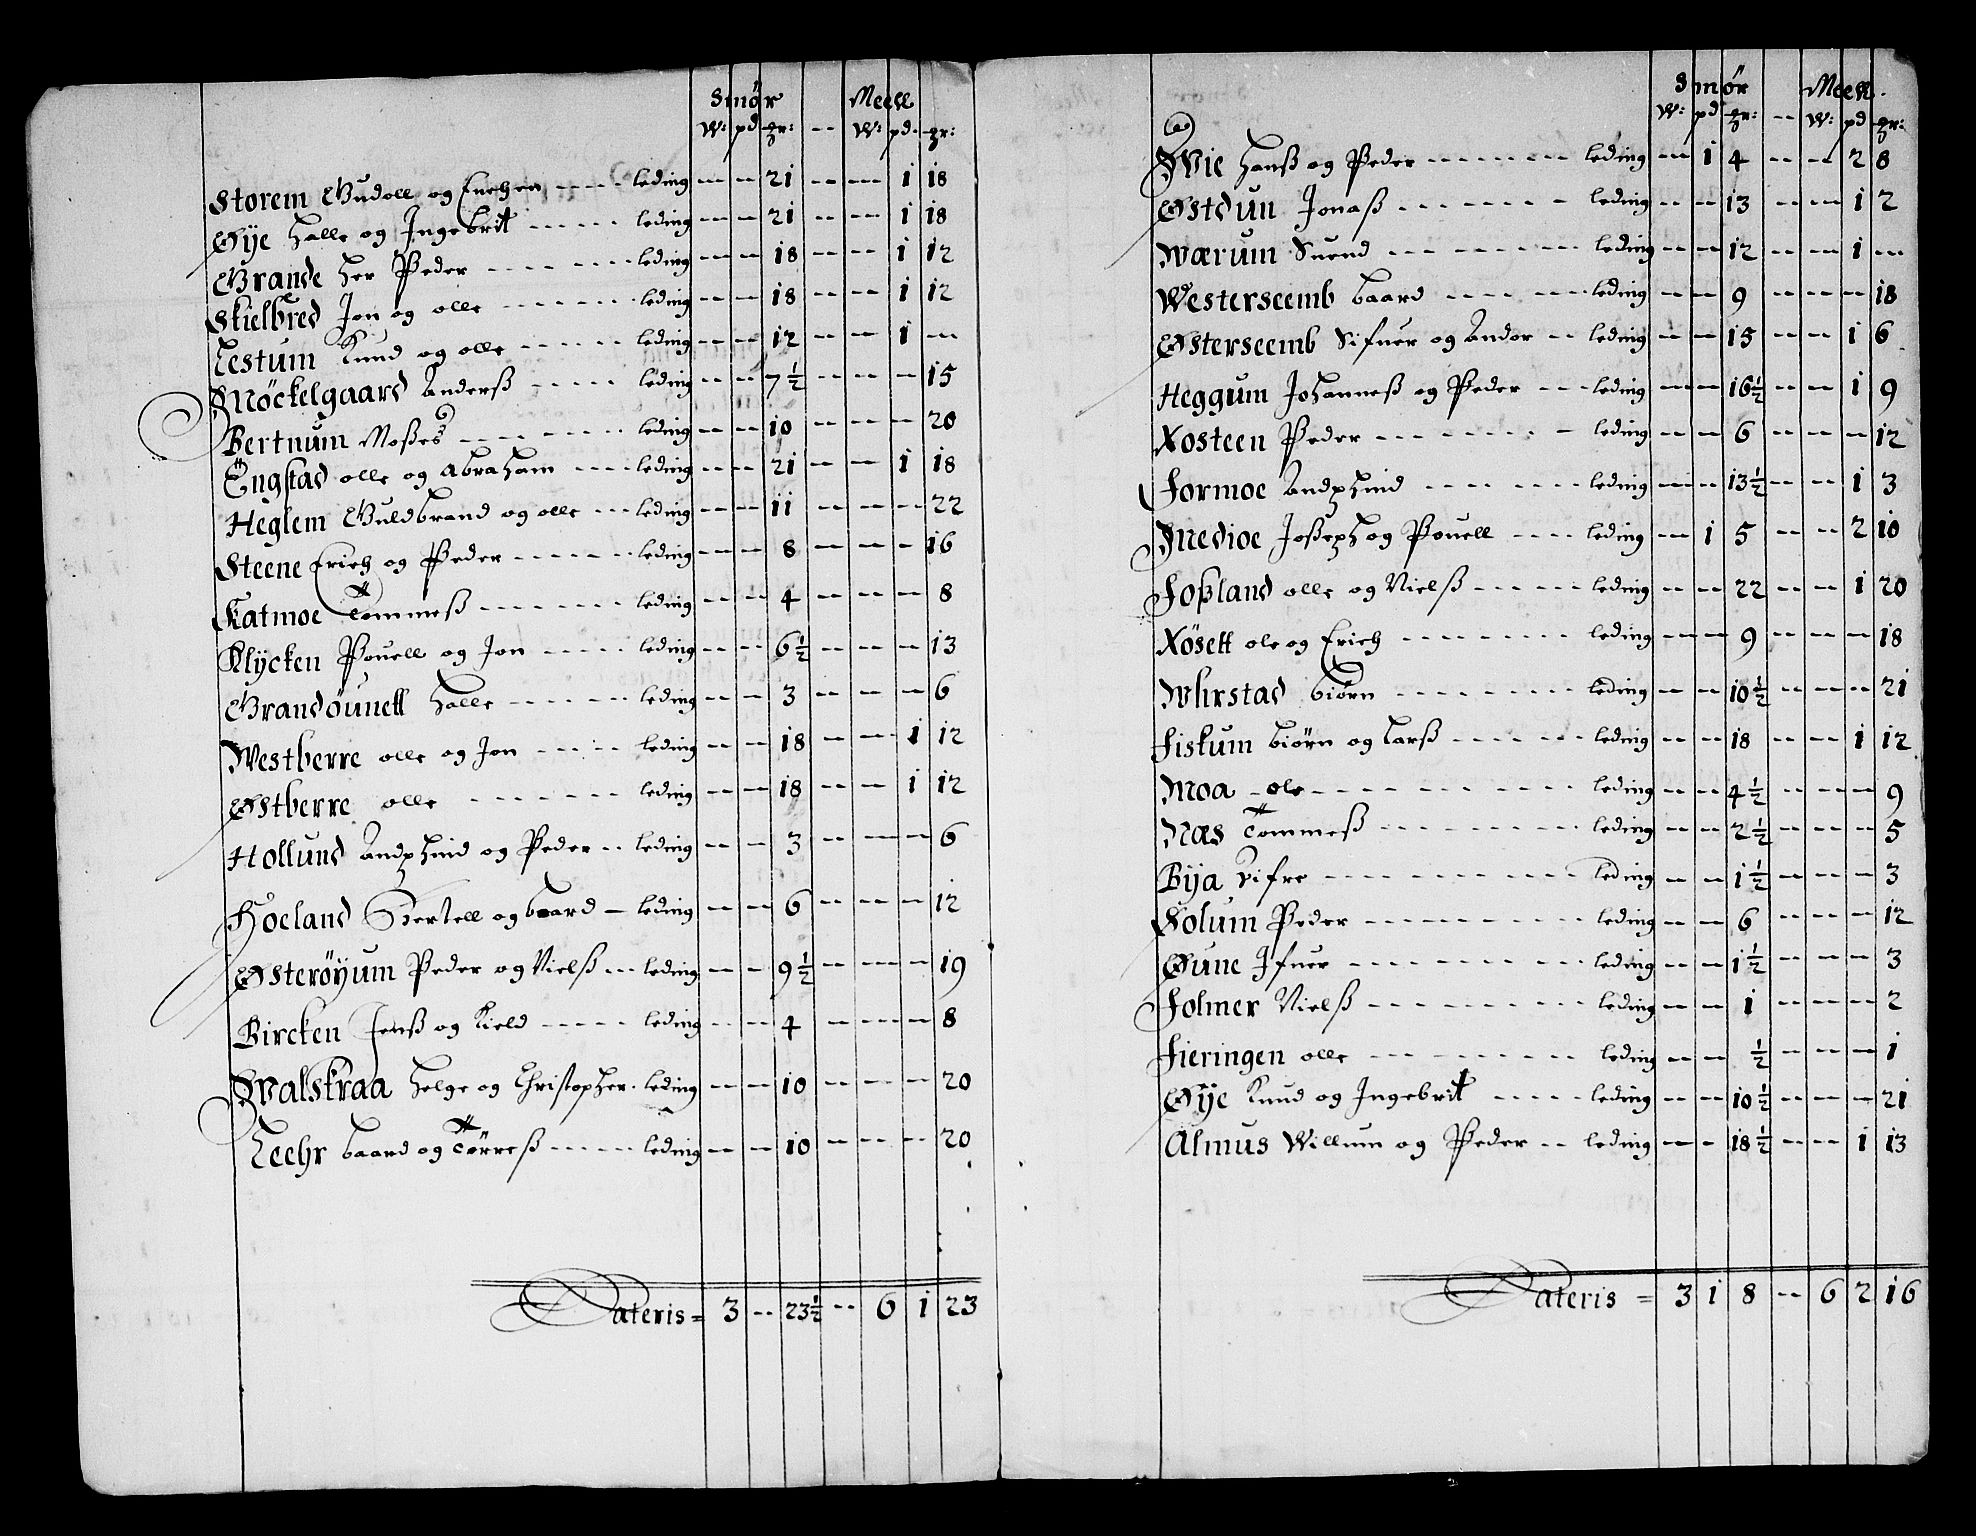 Smør Meell
W: pd gr: -- W: pd. gr:
Storem Gudoll og Erichen ---- leding -- -- 21 -- -- 1 18
Øÿe Halle og Ingebrit ----- leding -- -- 21 -- -- 1 18
Grande her Peder ------- leding -- -- 18 -- -- 1 12
Skielbred Jon og olle ------ leding -- -- 18 -- -- 1 12
Lestum Knud og olle ----- leding -- -- 12 -- -- 1 --
Møckelgaard Anderß ----- leding -- -- 7½ -- -- -- 15
Bertnum Moßes ------- leding -- -- 10 -- -- -- 20
Engstad olle og Abraham ---- leding -- -- 21 -- -- 1 18
Heglem Guldbrand og olle --- leding -- -- 11 -- -- -- 22
Steene Erich og Peder ------ leding -- -- 8 -- -- -- 16
Katmoe Tommeß ------- leding -- -- 4 -- -- -- 8
Klÿcken Pouell og Jon ----- leding -- -- 6½ -- -- -- 13
Grandøunett Halle ------ leding -- -- 3 -- -- -- 6
Westberre olle og Jon ----- leding -- -- 18 -- -- 1 12
Østberre olle ------- leding -- -- 18 -- -- 1 12
Hollund Andphind og Peder -- leding -- -- 3 -- -- -- 6
Hoeland Bertell og baard - leding -- -- 6 -- -- -- 12
Østerøÿum Peder og Nielß --- leding -- -- 9½ -- -- -- 19
Bircken Jenß og Kield ----- leding -- -- 4 -- -- -- 8
Svalskraa Helge og Christopher. leding -- -- 10 -- -- -- 20
Leehr baard og Tørreß ----- leding -- -- 10 -- -- -- 20
Lateris = 3 -- 23½ -- 6 1 23
Smør Meell.
W: pd gr: -- W: pd gr:
Vie Hanß og Peder ------- leding -- 1 4 -- -- 2 8
Østdun Jonaß ------- leding -- -- 13 -- -- 1 2
Wærum Suend ------- leding -- -- 12 -- -- 1 --
Westerseemb baard ------- leding -- -- 9 -- -- -- 18
Østerseemb Sifuer og Andor -- leding -- -- 15 -- -- 1 6
Heggum Johanneß og Peder --- leding -- -- 16½ -- -- 1 9
Xosteen Peder ------- leding -- -- 6 -- -- -- 12
Formoe Andphind ------- leding -- -- 13½ -- -- 1 3
Medioe Joßeph og Pouell ---- leding -- 1 5 -- -- 2 10
Foßland olle og Nielß ----- leding -- -- 22 -- -- 1 20
Xøsett ole og Erich ------- leding -- -- 9 -- -- -- 18
Whrstad biørn ------- leding -- -- 10½ -- -- -- 21
Fiskum biørn og Larß ------ leding -- -- 18 -- -- 1 12
Moa - ole -------- leding -- -- 4½ -- -- -- 9
Næs Tommeß ------- leding -- -- 2½ -- -- -- 5
Bÿa Sifre --------- leding -- -- 1½ -- -- -- 3
Solum Peder -------- leding -- -- 6 -- -- -- 12
Øune Ifuer -------- leding -- -- 1½ -- -- -- 3
Folmer Nielß ------- leding -- -- 1 -- -- -- 2
Fieringen olle ------- leding -- -- ½ -- -- -- 1
Øÿe Knud og Ingebrit ----- leding -- -- 10½ -- -- -- 21
Almus Willum og Peder -- leding -- -- 18½ -- -- 1 13
Lateris = 3 1 8 -- 6 2 16